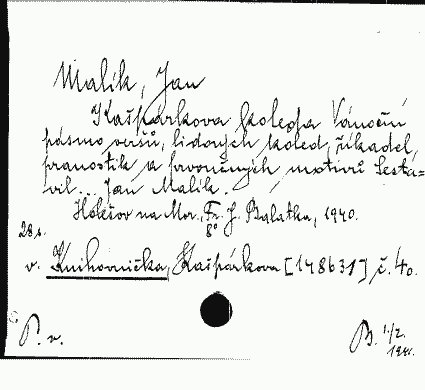 Malík, Jan
Kašpárkova koleda Vánoční
pásmo veršů, lidových koled, říkadel,
pranostik a prvotných motivů Sesta=
vil... Jan Malík.
Hološov na Mor., Fr. J. Balatka, 1940.
28 s. 8°
v. Knihovnička Kašpárkova [148631] č. 40.
P. v.
B. 1/2.